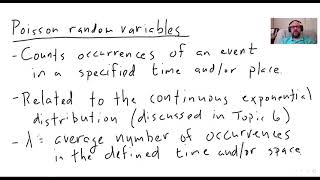 Poisson random variables
- Counts occurrences of an event
in a specified time and/or place.
- Related to the continuous exponential
distribution (discussed in Topic 6)
- λ = average number of occurrences
in the defined time and/or space.